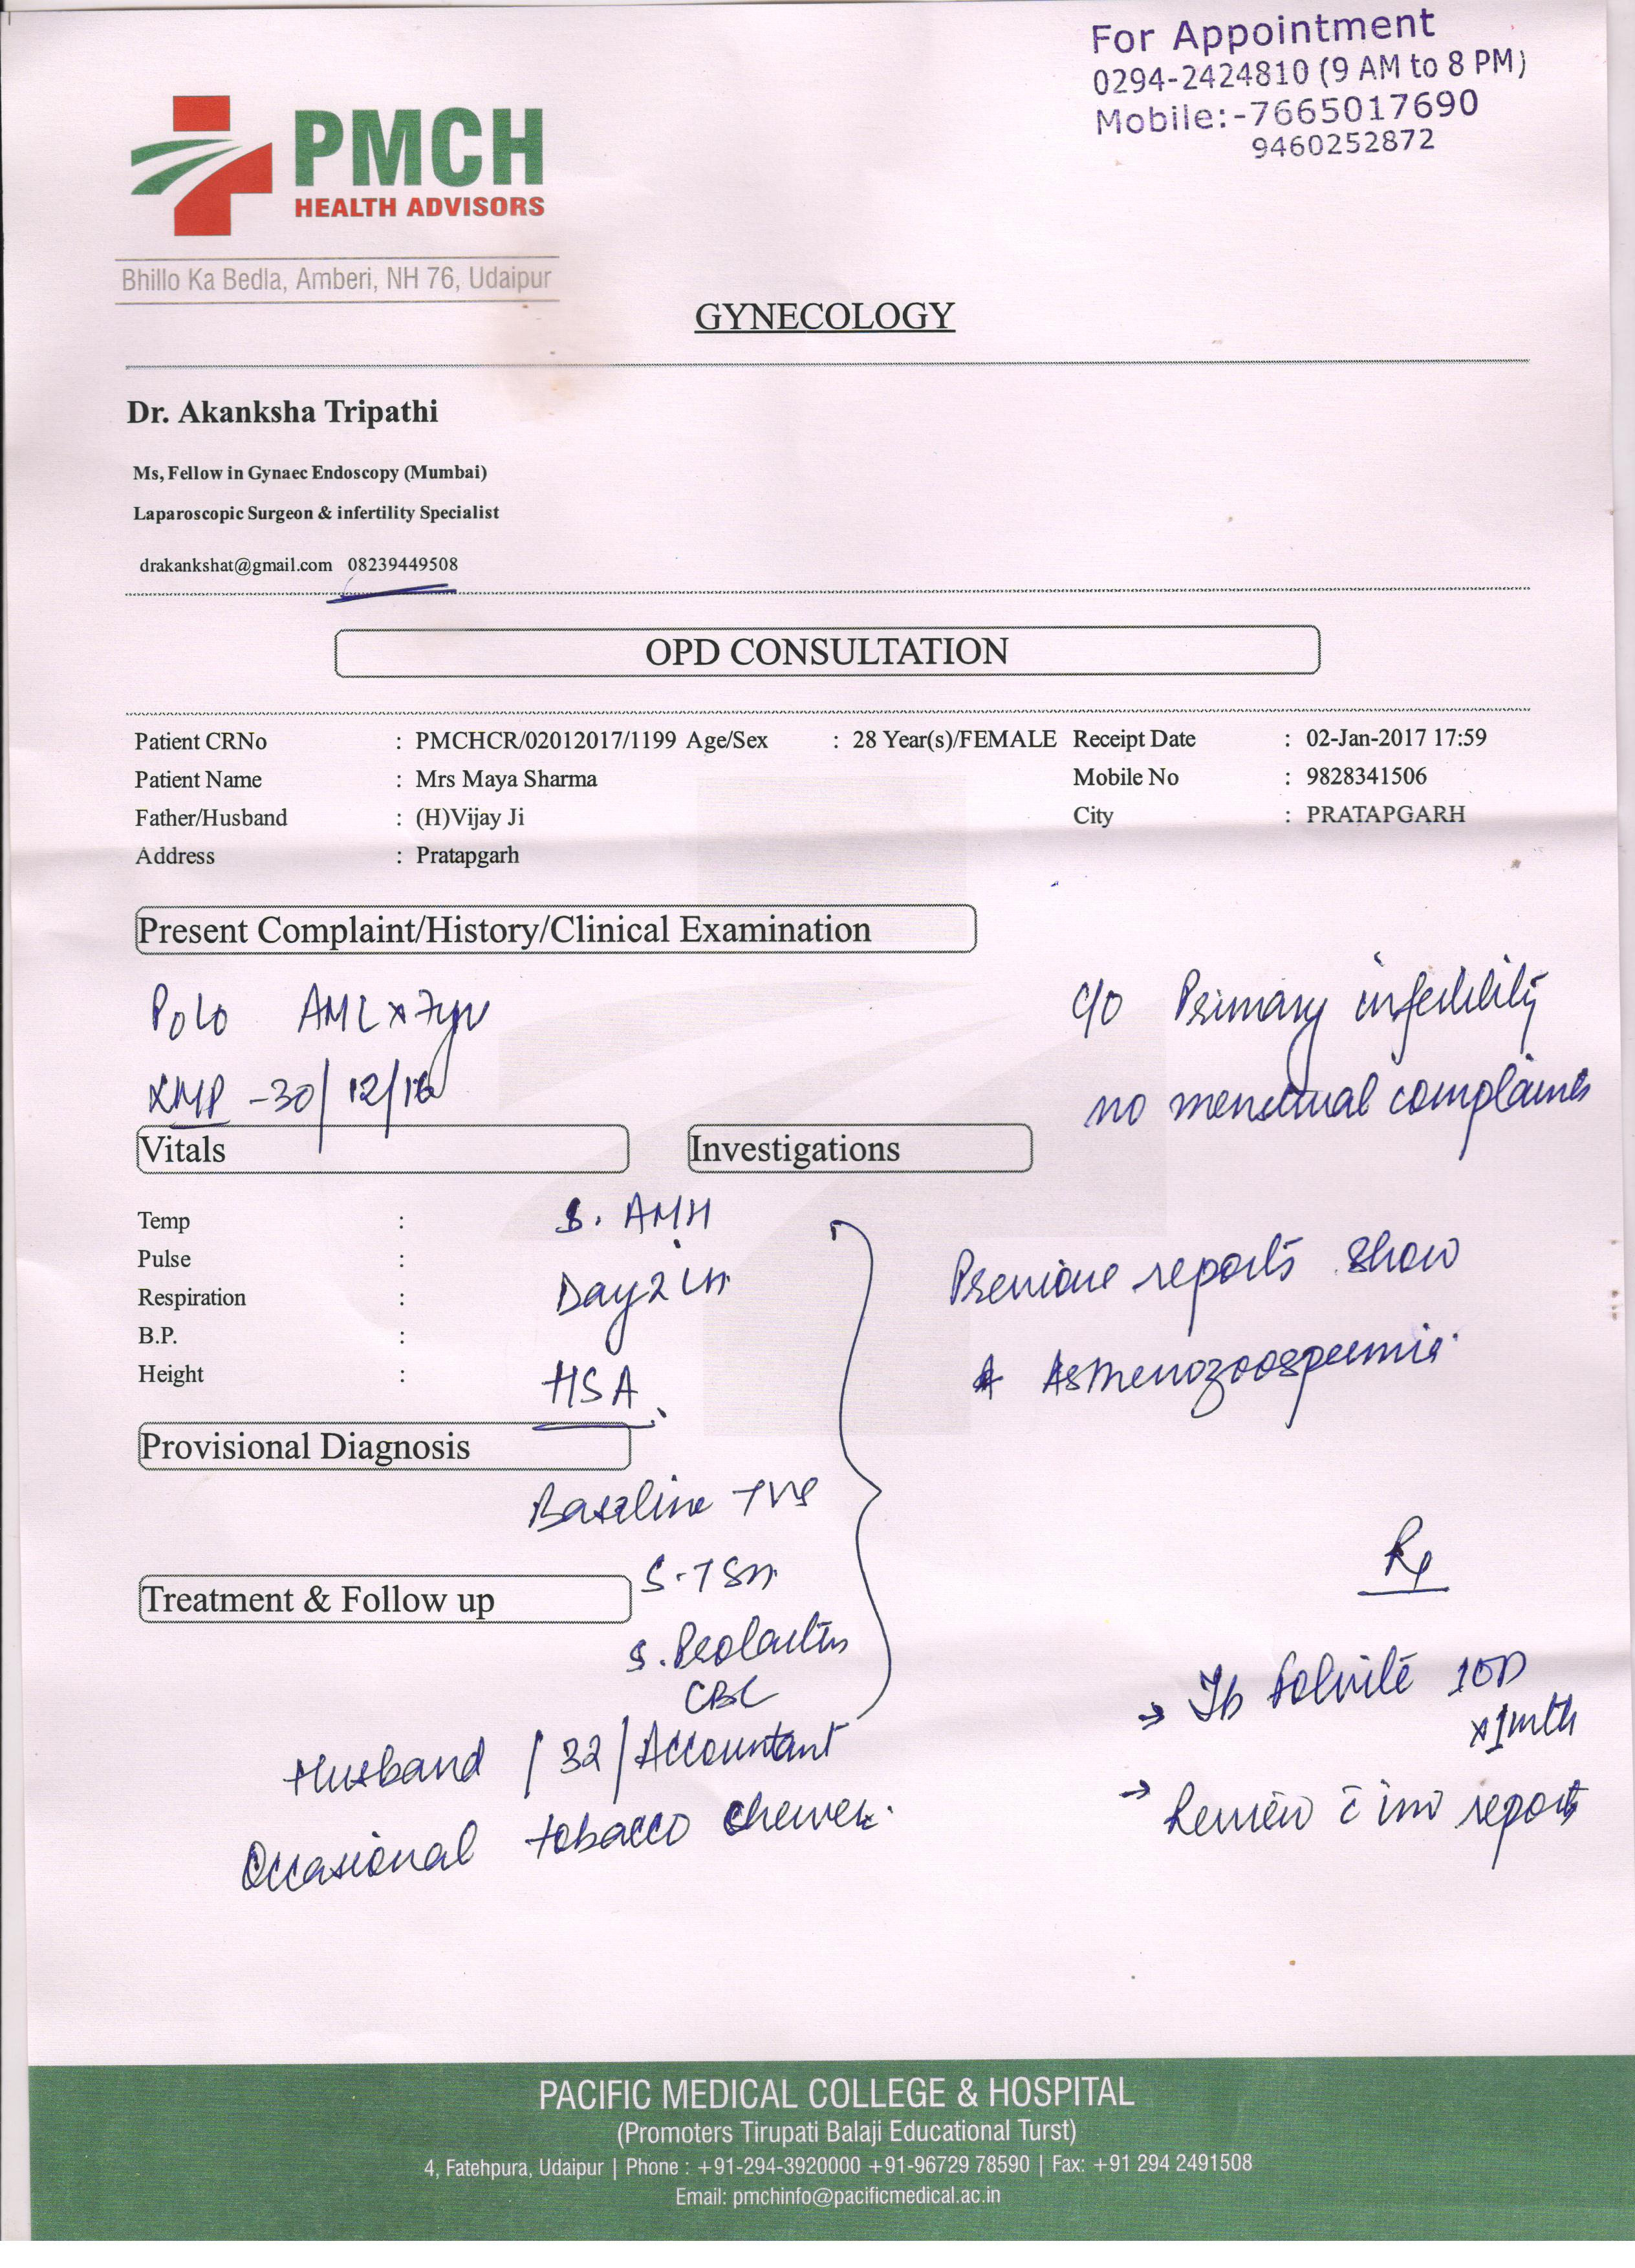 For Appointment
0294-2424810 (9 AM to 8 PM)
Mobile:-7665017690
9460252872
PMCH
HEALTH ADVISORS
Bhillo Ka Bedla, Amberi, NH 76, Udaipur
GYNECOLOGY
Dr. Akanksha Tripathi
Ms, Fellow in Gynaec Endoscopy (Mumbai)
Laparoscopic Surgeon & infertility Specialist
drakankshat@gmail.com 08239449508
OPD CONSULTATION
Patient CRNo : PMCHCR/02012017/1199 Age/Sex : 28 Year(s)/FEMALE Receipt Date : 02-Jan-2017 17:59
Patient Name : Mrs Maya Sharma Mobile No : 9828341506
Father/Husband : (H)Vijay Ji City : PRATAPGARH
Address : Pratapgarh
Present Complaint/History/Clinical Examination
P0L0 AML x 7yr
LMP -30/12/16
c/o Primary infertility
no menstrual complaints
Vitals
Investigations
Temp :
Pulse :
Respiration :
B.P. :
Height :
S. AMH
Day 2 LH
HSA
Previous reports show
Asthenozoospermia.
Provisional Diagnosis
Baseline TVS
S. TSH
Treatment & Follow up
S. Prolactin
CBC
Husband / 32 / Accountant
Occasional tobacco chewer.
Rx
→ Tb Folvite 1OD
x 1mth
→ Review c̄ inv reports
PACIFIC MEDICAL COLLEGE & HOSPITAL
(Promoters Tirupati Balaji Educational Turst)
4, Fatehpura, Udaipur | Phone : +91-294-3920000 +91-96729 78590 | Fax: +91 294 2491508
Email: pmchinfo@pacificmedical.ac.in